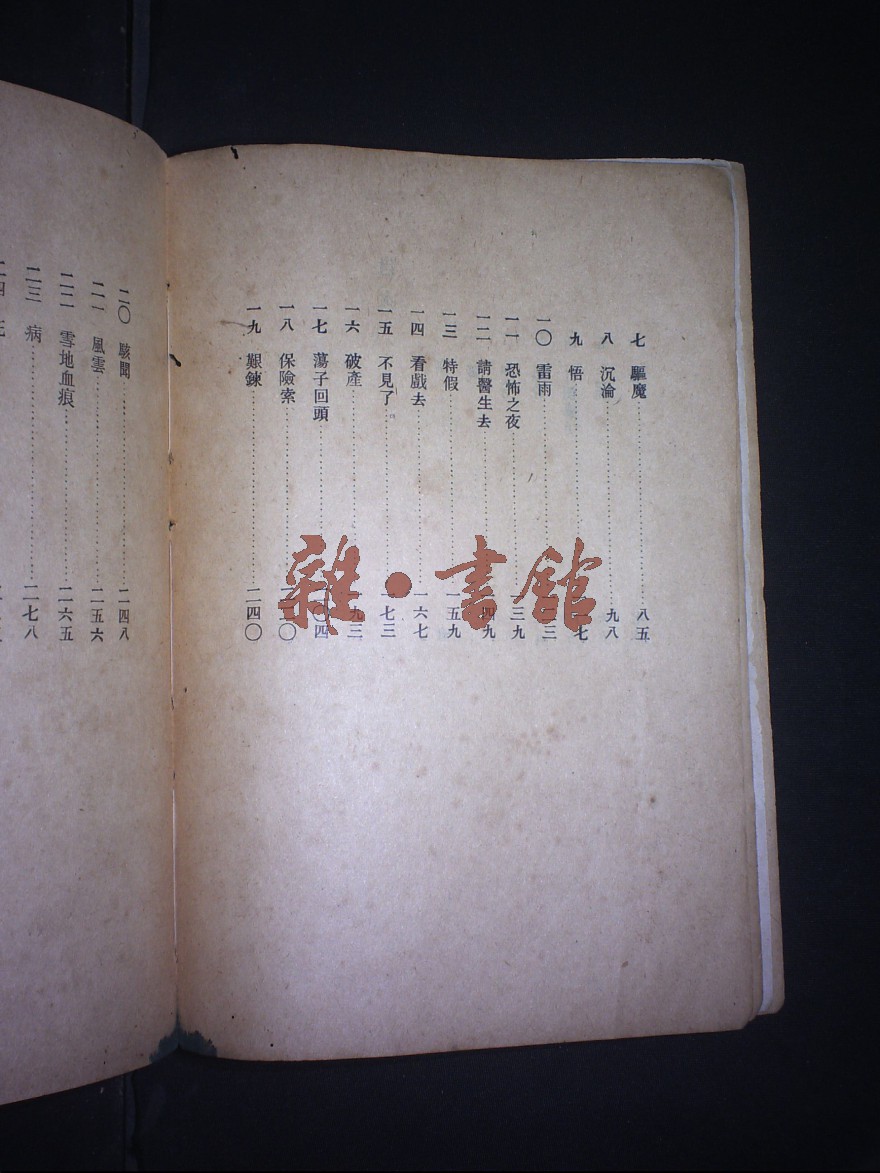 七 驅魔 八五
八 沉淪 九八
九 悟 一七
一〇 雷雨 三
一一 恐怖之夜 一三九
一二 請醫生去 四九
一三 特假 一五九
一四 看戲去 一六七
一五 不見了 一七三
一六 破產 九三
一七 蕩子回頭 〇四
一八 保險索 二〇
一九 艱鍊 二四〇
二〇 駭聞 二四八
二一 風雲 二五六
二二 雪地血痕 二六五
二三 病 二七八
二四
雜·書館